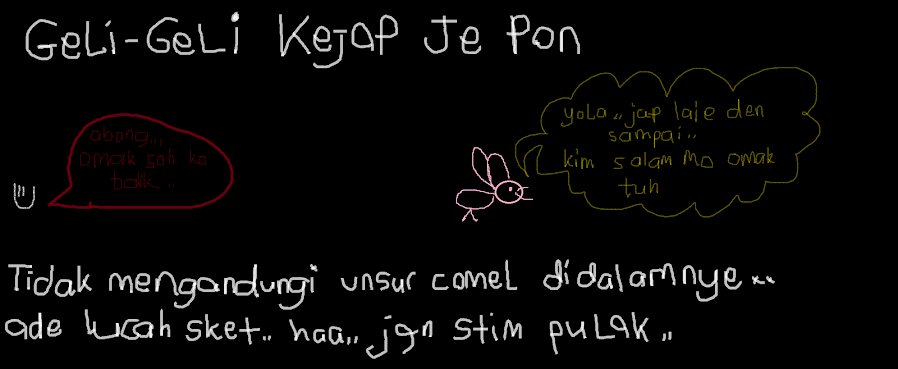 GeLi-GeLi Kejap Je Pon
abang...
omak soh ko
balik..
yola,, jap laie den
sampai..
kim salam mo omak
tuh
Tidak mengandungi unsur comel didalamnye...
ade lucah sket.. haa,, jgn stim pulak,,